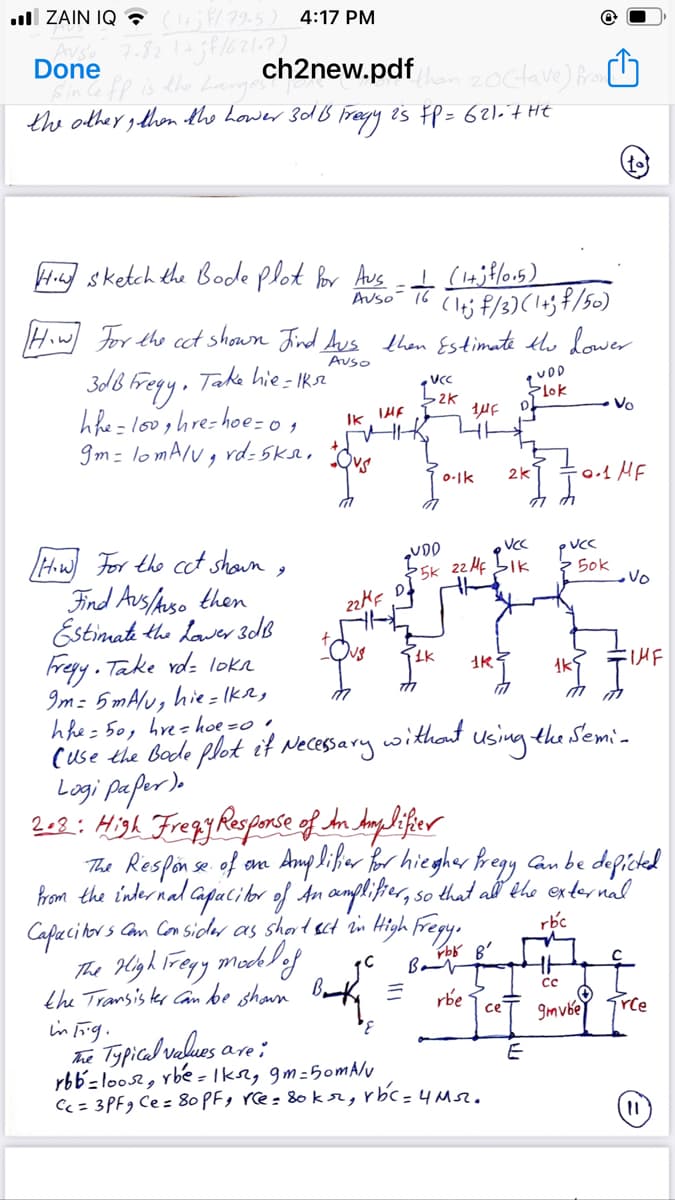 ZAIN IQ 4:17 PM
Done ch2new.pdf
the other, then the Lower 3dB Freqy is fp = 621.7 Hz
10
H.W sketch the Bode plot for Avs/Avso = 1/16 (1+jf/0.5)/(1+jf/3)(1+jf/50)
H.W For the cct shown Find Avs/Avso then Estimate the Lower
3dB Freqy. Take hie=1kΩ
hfe=100, hre=hoe=0,
gm=10mA/V, rd=5kΩ.
VCC VDD
2K 10k
1K 1MF 1MF D Vo
Vs 0.1k 2k 0.1 MF
H.W For the cct shown,
Find Avs/Avso then
Estimate the Lower 3dB
Freqy. Take rd= 10kΩ
gm= 5mA/V, hie=1kΩ,
hfe=50, hre=hoe=0.
VDD VCC VCC
5K 22MF 1K 50k
22MF D Vo
Vs 1K 1K 1k 1MF
(use the Bode plot if Necessary without using the Semi-
Logi paper).
2.8: High Freqy Response of An Amplifier
The Response of an Amplifier for hiegher freqy can be depicted
from the internal capacitor of An amplifier, so that all the external
Capacitors Can Consider as short cct in High Freqy.
The High Freqy model of
the Transister Can be shown
in Fig.
B C E ≡ B rbb' B' rb'c C
Cc
rb'e Ce gmvb'e rce
E
The Typical values are:
rbb'=100Ω, rb'e=1kΩ, gm=50mA/V
Cc=3PF, Ce=80PF, rce=80kΩ, rb'c=4MΩ.
11